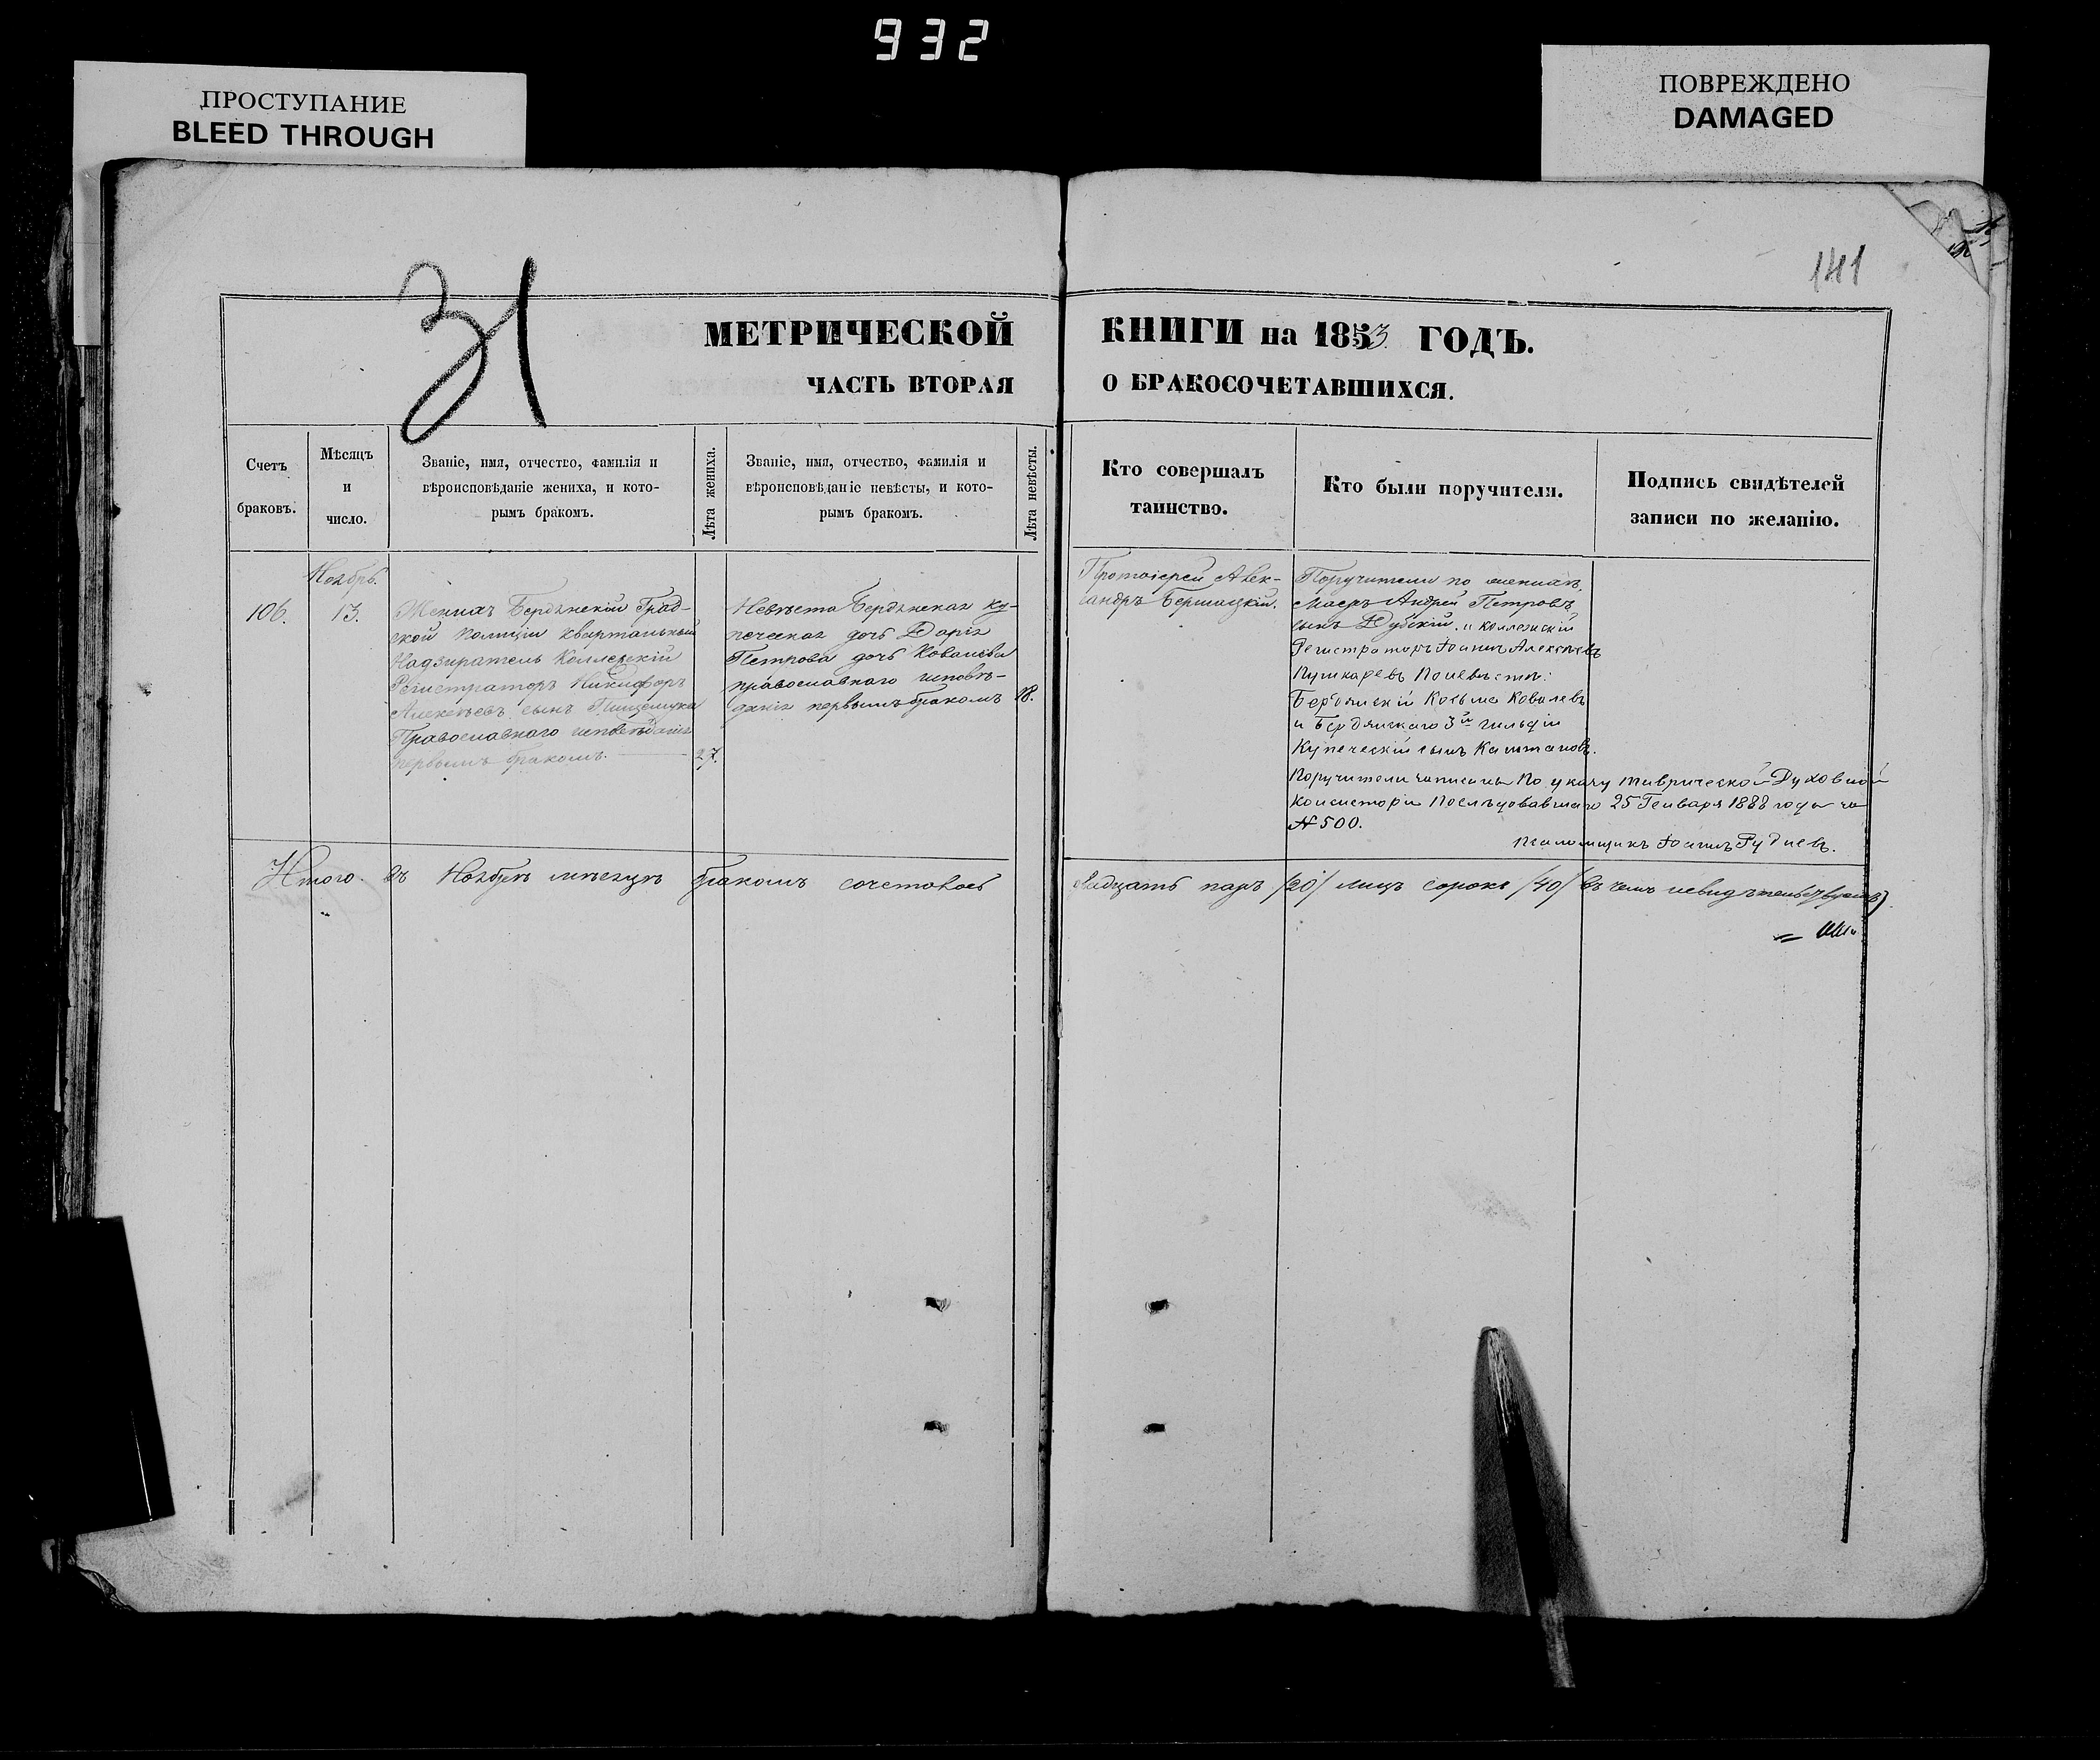 932
ПРОСТУПАНИЕ
BLEED THROUGH
ПОВРЕЖДЕНО
DAMAGED
141
31
МЕТРИЧЕСКОЙ КНИГИ на 1853 ГОДЪ.
ЧАСТЬ ВТОРАЯ О БРАКОСОЧЕТАВШИХСЯ.
Счетъ
браковъ.
Мѣсяцъ
и
число.
Званіе, имя, отчество, фамилія и
вѣроисповѣданіе жениха, и кото-
рымъ бракомъ.
Лѣта жениха.
Званіе, имя, отчество, фамилія и
вѣроисповѣданіе невѣсты, и кото-
рымъ бракомъ.
Лѣта невѣсты.
Кто совершалъ
таинство.
Кто были поручители.
Подпись свидѣтелей
записи по желанію.
106.
Ноябрь.
13.
Женихъ Бердянскій Град-
ской полиціи квартальный
Надзиратель Коллежскій
Регистраторъ Никифоръ
Алексѣевъ сынъ
Православнаго исповѣданія
первымъ бракомъ.
27.
Невѣста Бердянская ку-
печеская дочь Дарія
Петрова дочь Ковалева
православнаго исповѣ-
данія первымъ бракомъ
18.
Протоіерей Алек-
сандръ
Поручители по женихѣ
Маеръ Андрей Петровъ
сынъ Дубскій и коллежскій
Регистраторъ Іоаннъ Алексѣевъ
Пушкаревъ По невѣстѣ:
Бердянскій Косьма Ковалевъ
и Бердянскаго 3й гильдіи
Купеческій сынъ Каштановъ.
Поручители записаны по указу Таврической Духовной
Консисторіи послѣдовавшаго 25 Генваря 1888 года за
№ 500.
Псаломщикъ Іоаннъ Рудневъ.
Итого въ Ноябрѣ мѣсяцѣ бракомъ сочеталось двадцать паръ /20/ лицъ сорокъ /40/ въ чемъ